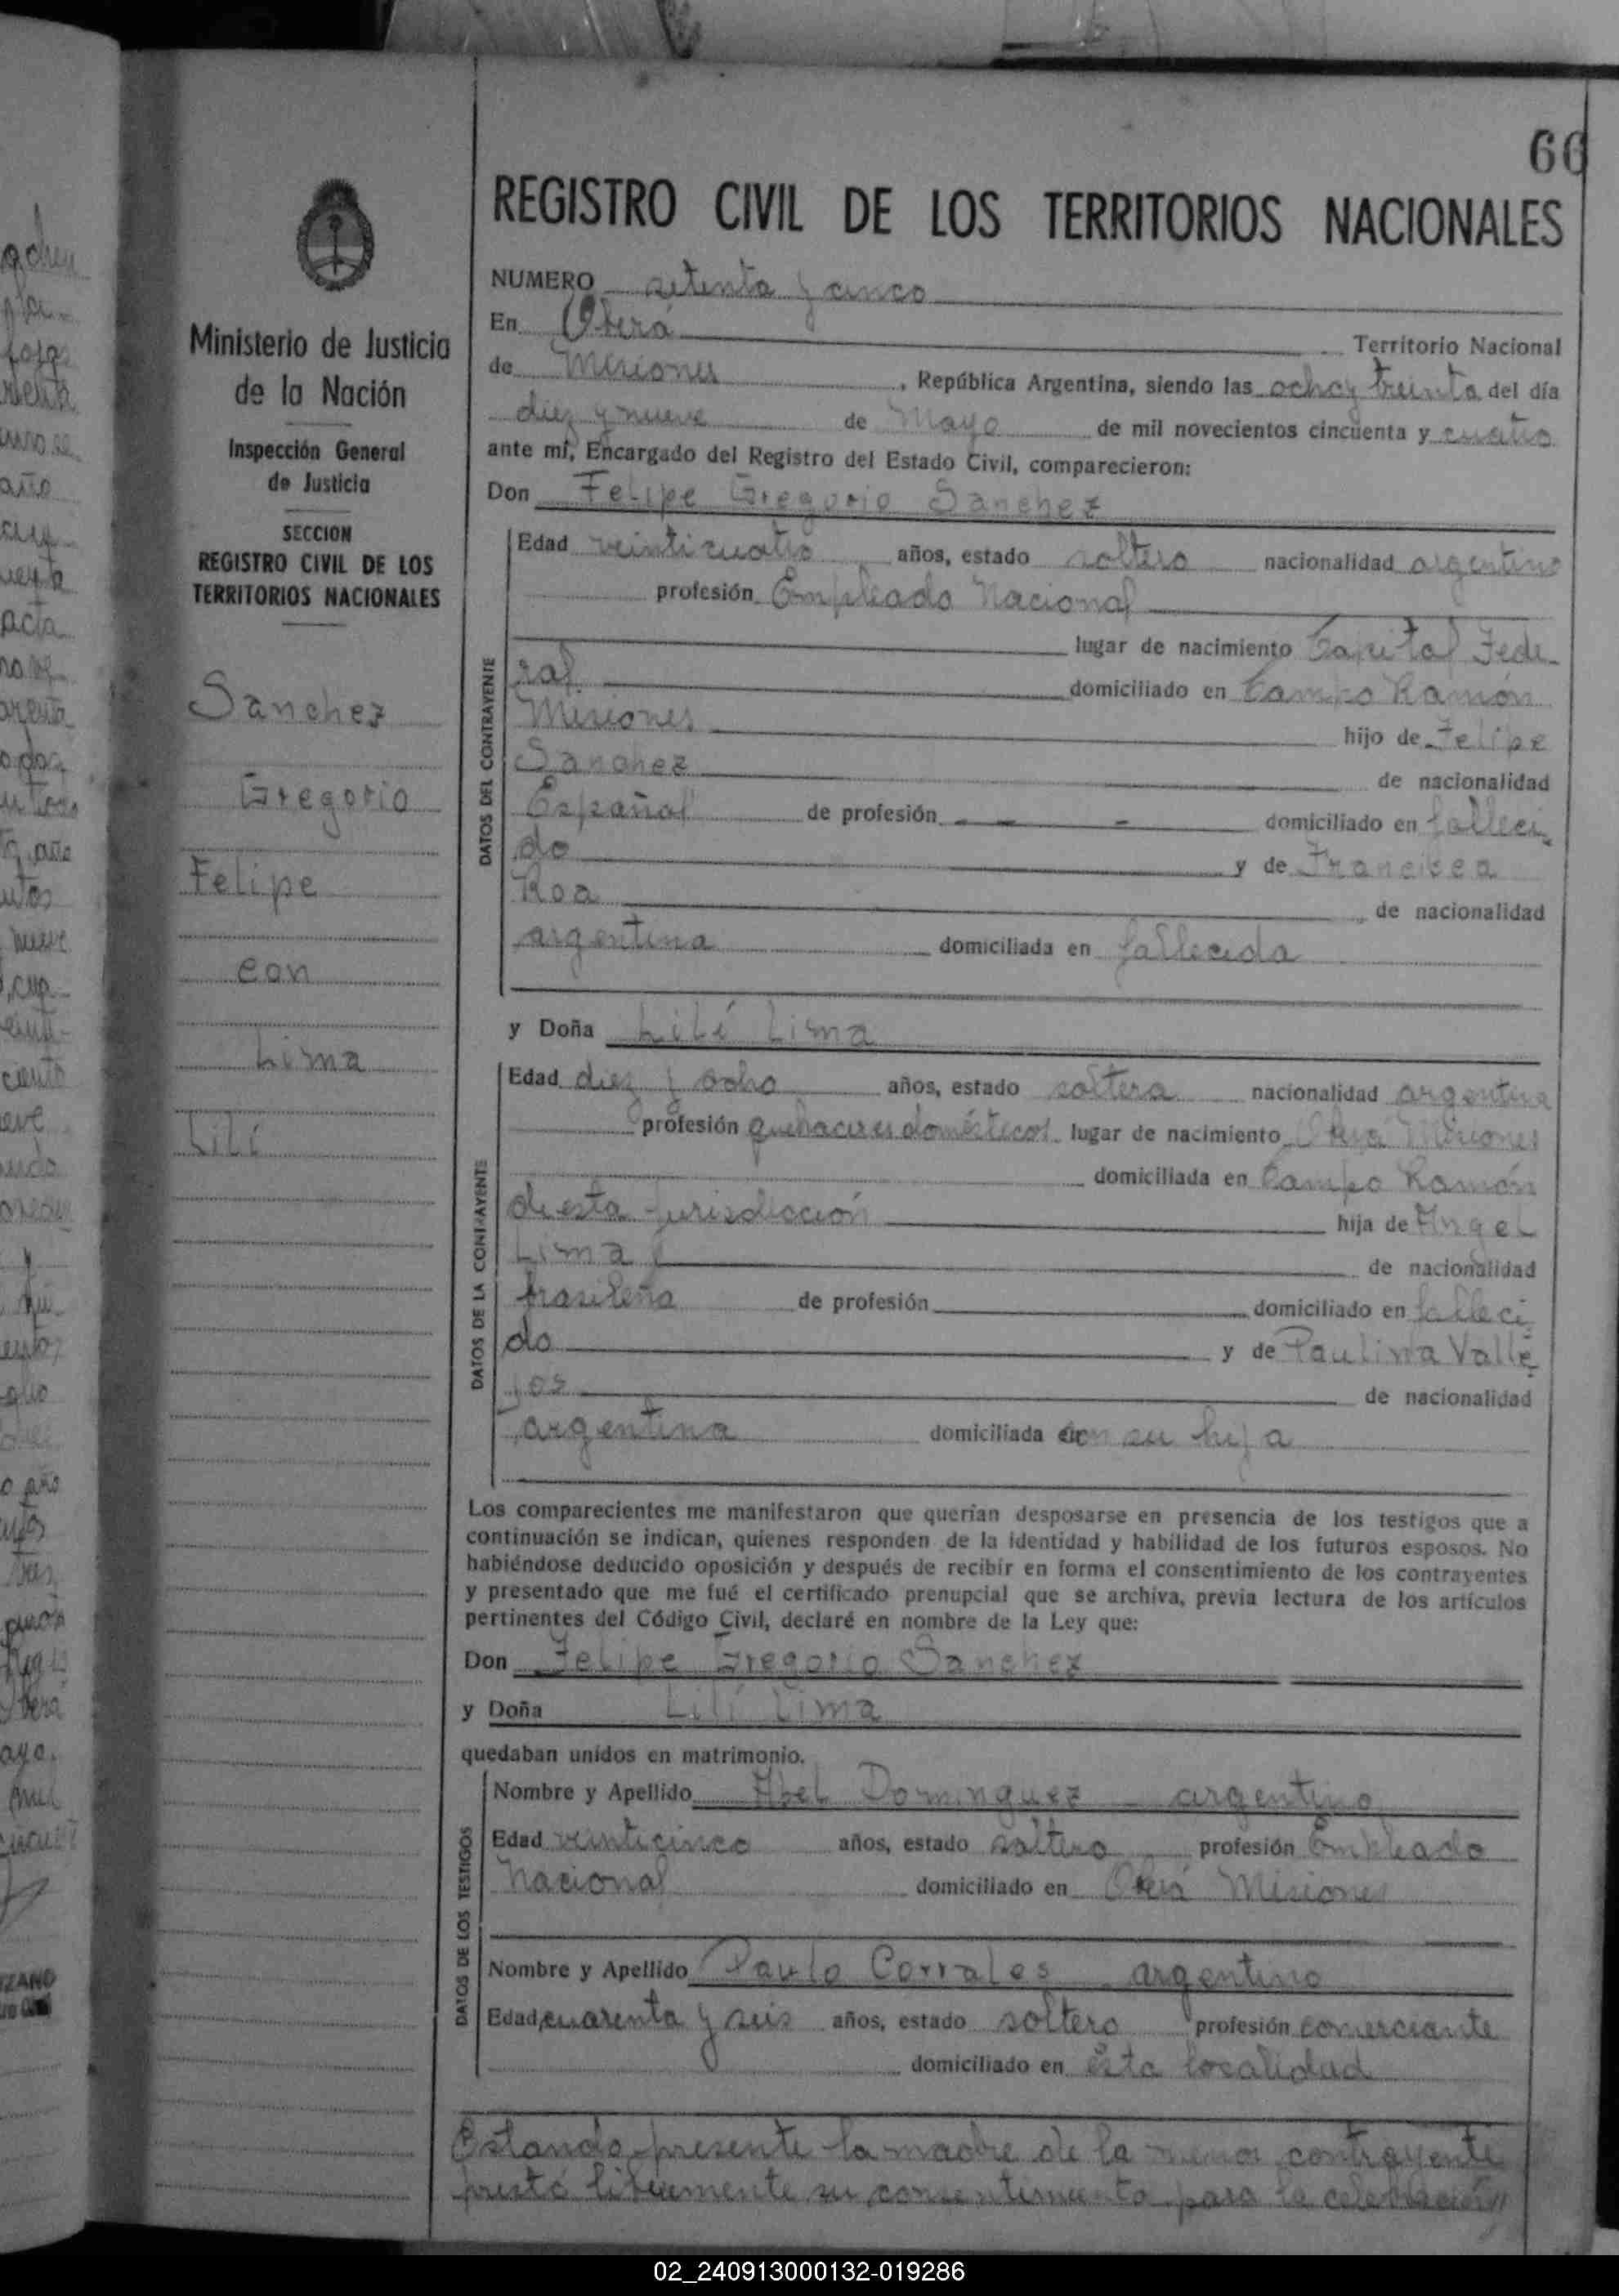 66
REGISTRO CIVIL DE LOS TERRITORIOS NACIONALES
Ministerio de Justicia
de la Nación
Inspección General
de Justicia
SECCION
REGISTRO CIVIL DE LOS
TERRITORIOS NACIONALES
Sanchez
Gregorio
Felipe
con
Lima
Lilí
NUMERO setenta y cinco
En Oberá Territorio Nacional
de Misiones, República Argentina, siendo las ocho y treinta del día
diez y nueve de Mayo de mil novecientos cincuenta y cuatro
ante mí, Encargado del Registro del Estado Civil, comparecieron:
Don Felipe Gregorio Sanchez
DATOS DEL CONTRAYENTE
Edad veinticuatro años, estado soltero nacionalidad argentino
profesión Empleado Nacional
lugar de nacimiento Capital Fede-
ral domiciliado en Campo Ramón
Misiones hijo de Felipe
Sanchez de nacionalidad
Español de profesión - - - domiciliado en falleci-
do y de Francisca
Roa de nacionalidad
argentina domiciliada en fallecida
y Doña Lilí Lima
DATOS DE LA CONTRAYENTE
Edad diez y ocho años, estado soltera nacionalidad argentina
profesión quehaceres domésticos lugar de nacimiento Oberá Misiones
domiciliada en Campo Ramón
de esta jurisdicción hija de Angel
Lima de nacionalidad
brasileña de profesión domiciliado en falleci
do y de Paulina Valle
jos de nacionalidad
argentina domiciliada con su hija
Los comparecientes me manifestaron que querían desposarse en presencia de los testigos que a
continuación se indican, quienes responden de la identidad y habilidad de los futuros esposos. No
habiéndose deducido oposición y después de recibir en forma el consentimiento de los contrayentes
y presentado que me fué el certificado prenupcial que se archiva, previa lectura de los artículos
pertinentes del Código Civil, declaré en nombre de la Ley que:
Don Felipe Gregorio Sanchez
y Doña Lilí Lima
quedaban unidos en matrimonio.
DATOS DE LOS TESTIGOS
Nombre y Apellido Abel Dominguez argentino
Edad veinticinco años, estado soltero profesión Empleado
Nacional domiciliado en Oberá Misiones
Nombre y Apellido Paulo Corrales argentino
Edad cuarenta y seis años, estado soltero profesión comerciante
domiciliado en ésta localidad
Estando presente la madre de la menor contrayente
prestó libremente su consentimiento para la celebración
02_240913000132-019286